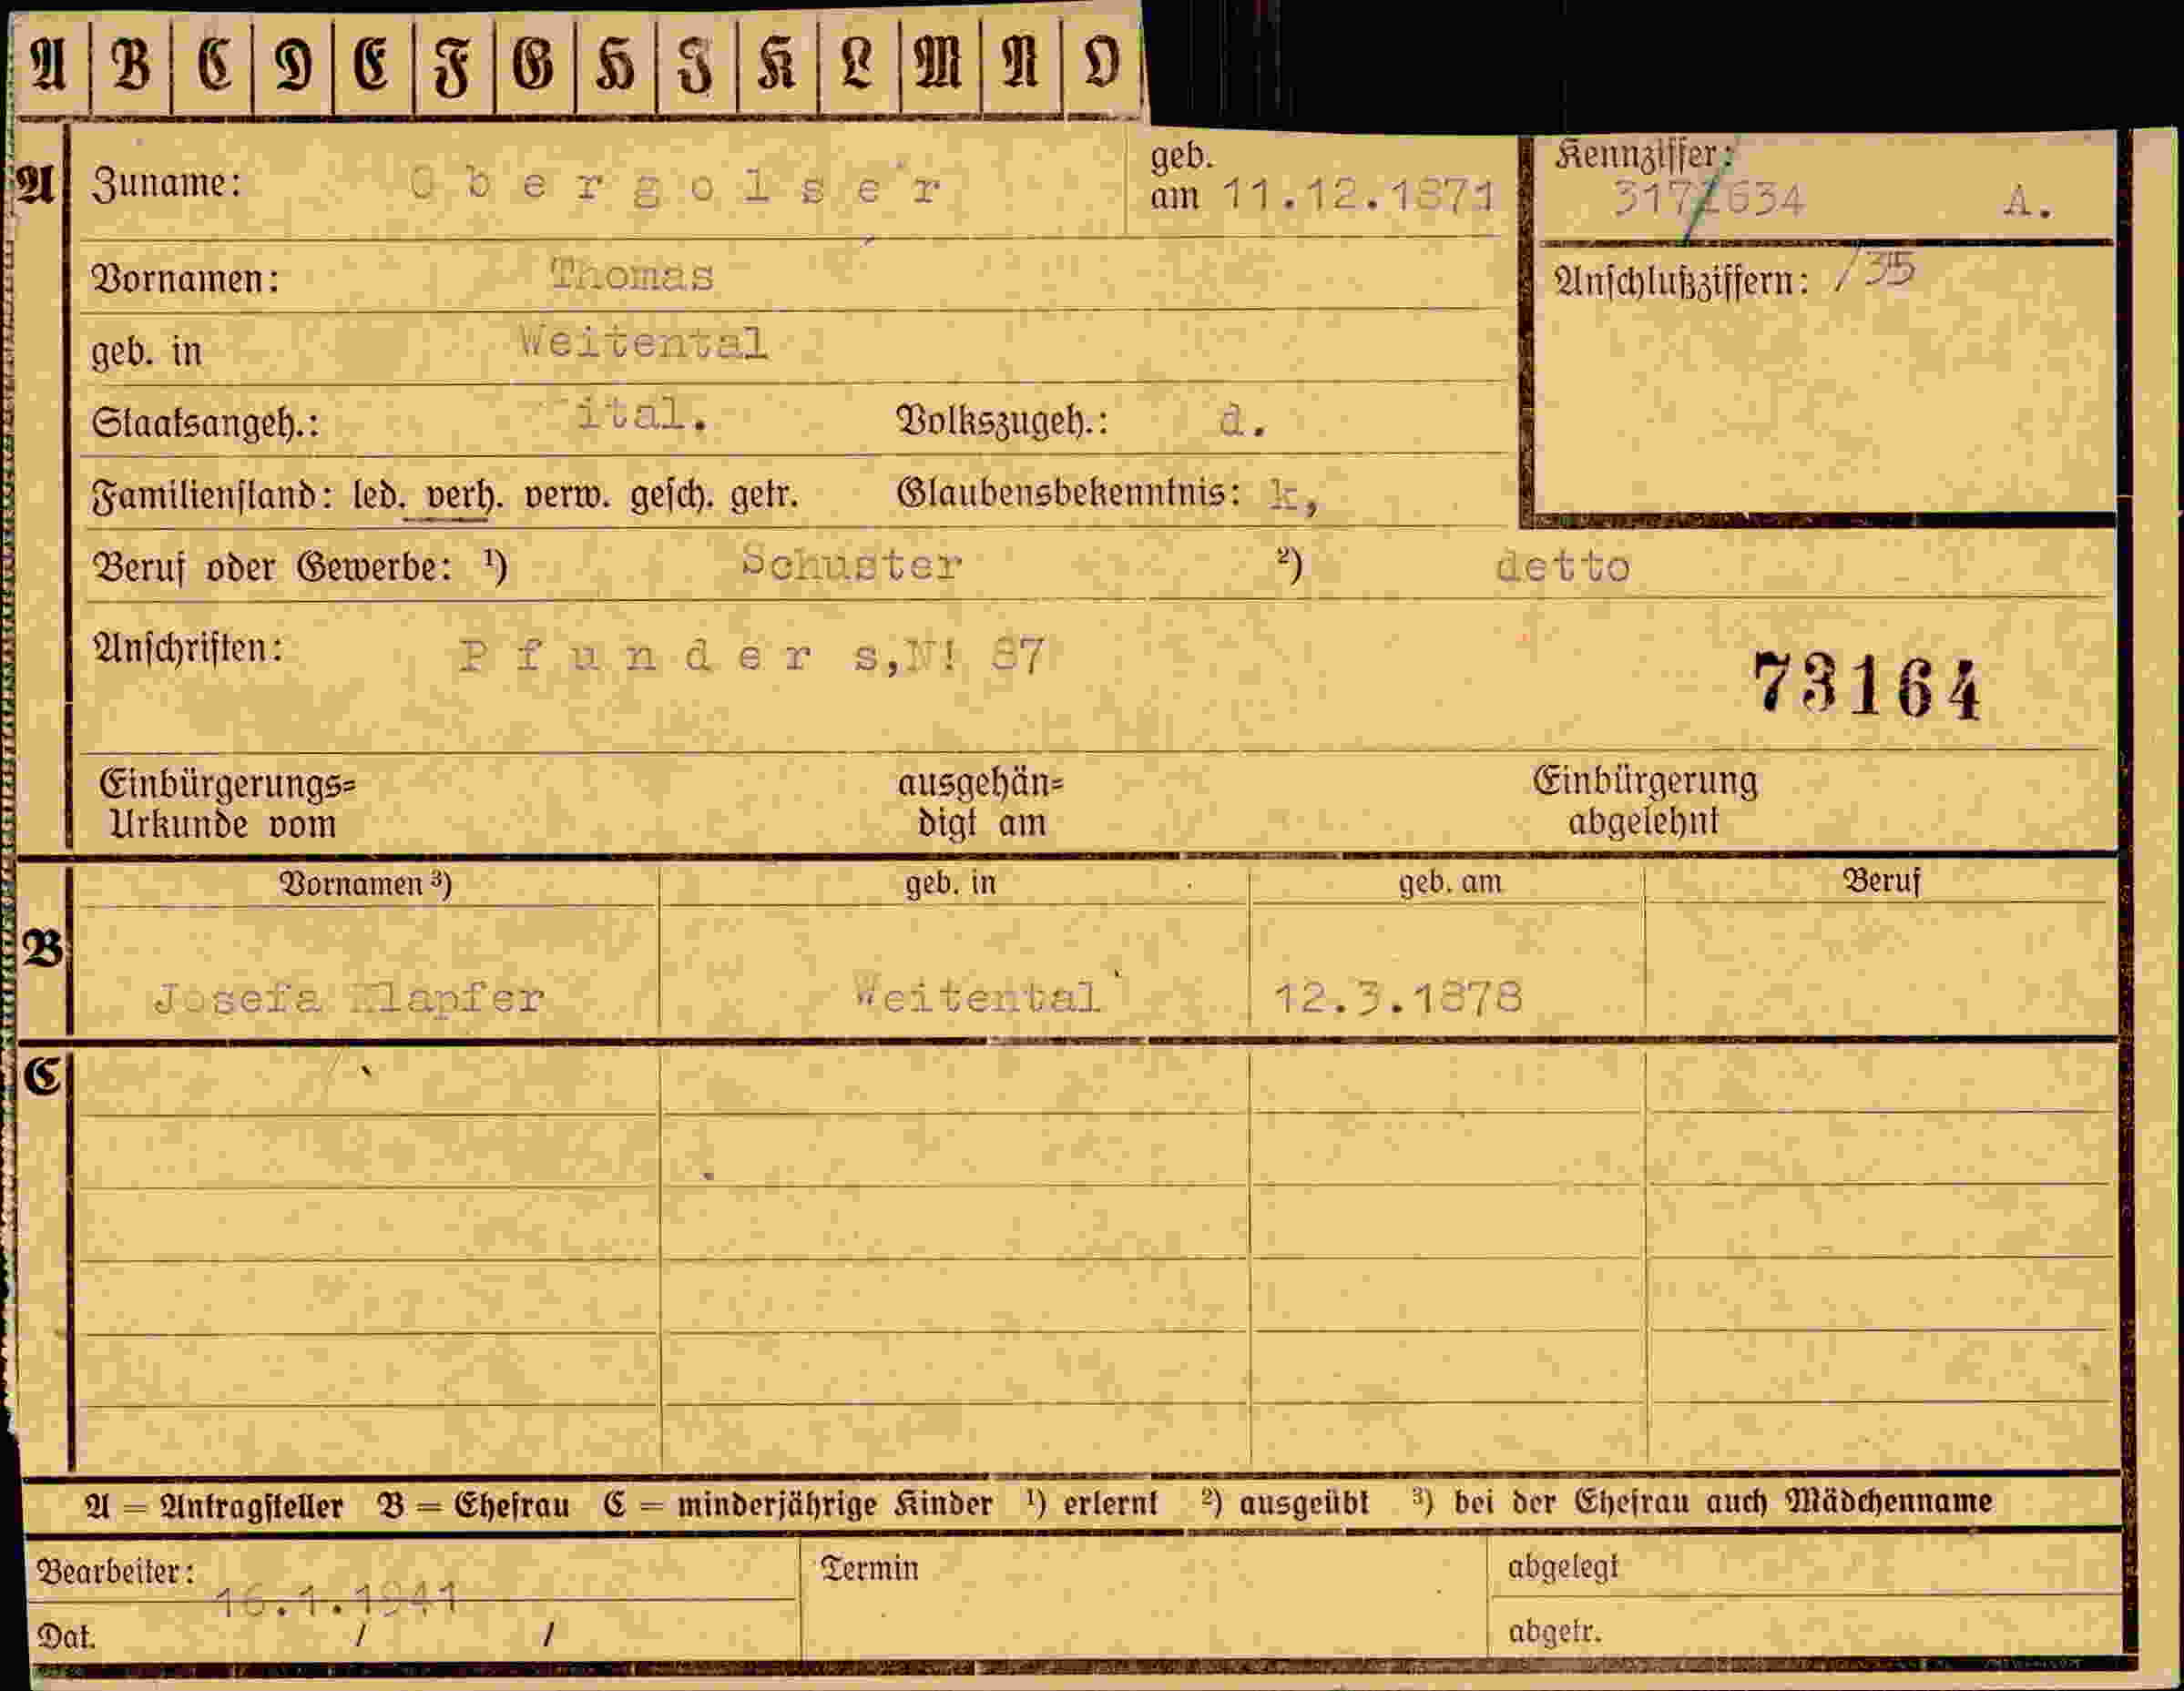 A B C D E F G H J K L M N O
A Zuname: Obergolser geb. am 11.12.1871 Kennziffer: 317/634 A.
Vornamen: Thomas Anschlußziffern: /35
geb. in Weitental
Staatsangeh.: ital. Volkszugeh.: d.
Familienstand: led. verh. verw. gesch. getr. Glaubensbekenntnis: k,
Beruf oder Gewerbe: ¹) Schuster ²) detto
Anschriften: Pfunders,N! 87
73164
Einbürgerungs= ausgehän= Einbürgerung
Urkunde vom digt am abgelehnt
Vornamen ³) geb. in geb. am Beruf
B
Josefa Klapfer Weitental 12.3.1878
C
A = Antragsteller B = Ehefrau C = minderjährige Kinder ¹) erlernt ²) ausgeübt ³) bei der Ehefrau auch Mädchenname
Bearbeiter: Termin abgelegt
16.1.1941
Dat. / / abgetr.